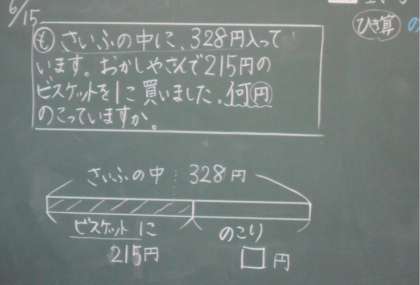 6/15
ひき算
の
も さいふの中に、328円入って
います。おかしやさんで215円の
ビスケットを1こ買いました。何円
のこっていますか。
さいふの中:328円
ビスケット1こ
215円
のこり
□円